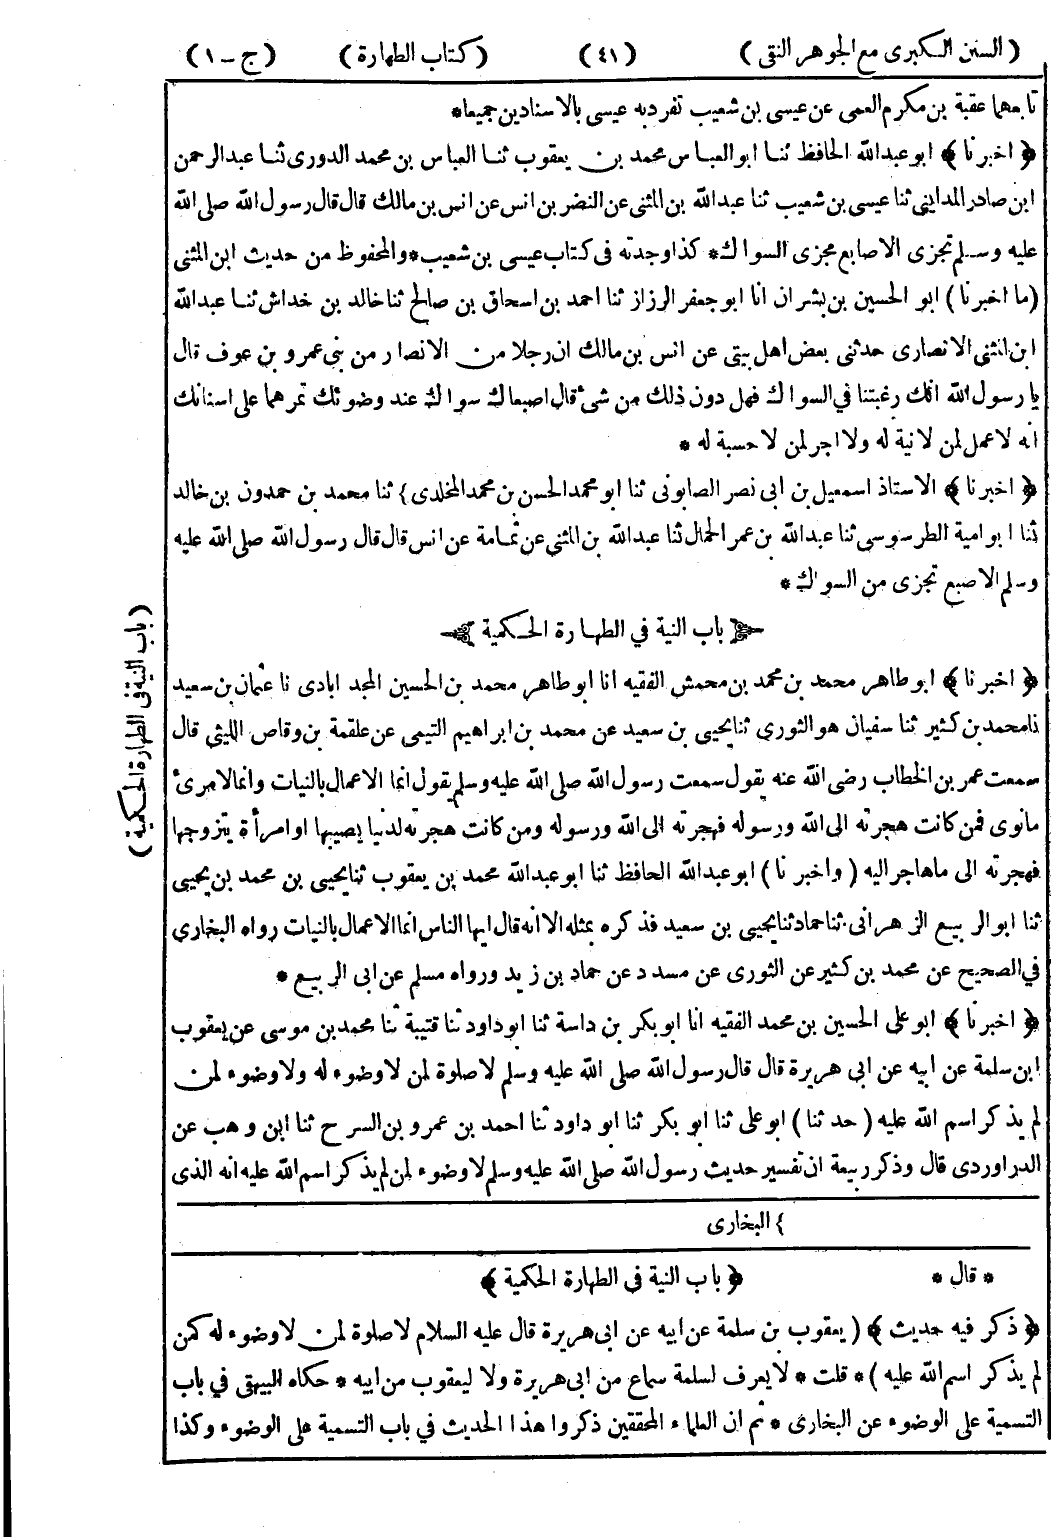 ( السنن الكبرى مع الجوهر النقى ) ( ٤١ ) ( كتاب الطهارة ) ( ج - ١ )
تابعهما عقبة بن مكرم العمى عن عيسى بن شعيب تفرد به عيسى بالاسنادين جميعا *
﴿ اخبرنا ﴾ ابو عبدالله الحافظ ثنا ابو العباس محمد بن يعقوب ثنا العباس بن محمد الدورى ثنا عبدالرحمن
ابن صادر المدايني ثنا عيسى بن شعيب ثنا عبدالله بن المثنى عن النضر بن انس عن انس بن مالك قال قال رسول الله صلى الله
عليه وسلم تجزى الاصابع مجزى السواك * كذا وجدته فى كتاب عيسى بن شعيب * والمحفوظ من حديث ابن المثنى
( ما اخبرنا ) ابو الحسين بن بشران انا ابو جعفر الرزاز ثنا احمد بن اسحاق بن صالح ثنا خالد بن خداش ثنا عبدالله
ابن المثنى الانصارى حدثنى بعض اهل بيتى عن انس بن مالك ان رجلا من الانصار من بنى عمرو بن عوف قال
يا رسول الله انك رغبتنا في السواك فهل دون ذلك من شئ قال اصبعاك سواك عند وضوئك تمرهما على اسنانك
انه لاعمل لمن لا نية له ولا اجر لمن لا حسبة له *
﴿ اخبرنا ﴾ الاستاذ اسمعيل بن ابى نصر الصابونى ثنا ابو محمد الحسن بن محمد المخلدى } ثنا محمد بن حمدون بن خالد
ثنا ابو امية الطرسوسى ثنا عبدالله بن عمر الحمال ثنا عبدالله بن المثنى عن ثمامة عن انس قال قال رسول الله صلى الله عليه
وسلم الاصبع تجزى من السواك *
باب النية في الطهارة الحكمية
( باب النية فى الطهارة الحكمية )
﴿ اخبرنا ﴾ ابو طاهر محمد بن محمد بن محمش الفقيه انا ابو طاهر محمد بن الحسين المجد ابادى نا عثمان بن سعيد
نا محمد بن كثير ثنا سفيان هو الثورى ثنا يحيى بن سعيد عن محمد بن ابراهيم التيمى عن علقمة بن وقاص الليثى قال
سمعت عمر بن الخطاب رضى الله عنه يقول سمعت رسول الله صلى الله عليه وسلم يقول انما الاعمال بالنيات وانما لامرئ
مانوى فمن كانت هجرته الى الله ورسوله فهجرته الى الله ورسوله ومن كانت هجرته لدنيا يصيبها او امرأة يتزوجها
فهجرته الى ما هاجر اليه ( واخبرنا ) ابو عبدالله الحافظ ثنا ابو عبدالله محمد بن يعقوب ثنا يحيى بن محمد بن يحيى
ثنا ابو الربيع الزهرانى ثنا حماد ثنا يحيى بن سعيد فذكره بمثله الا انه قال ايها الناس انما الاعمال بالنيات رواه البخارى
فى الصحيح عن محمد بن كثير عن الثورى عن مسدد عن حماد بن زيد ورواه مسلم عن ابى الربيع *
﴿ اخبرنا ﴾ ابو على الحسين بن محمد الفقيه انا ابو بكر بن داسة ثنا ابو داود ثنا قتيبة ثنا محمد بن موسى عن يعقوب
ابن سلمة عن ابيه عن ابى هريرة قال قال رسول الله صلى الله عليه وسلم لا صلوة لمن لا وضوء له ولا وضوء لمن
لم يذكر اسم الله عليه ( حدثنا ) ابو على ثنا ابو بكر ثنا ابو داود ثنا احمد بن عمرو بن السرح ثنا ابن وهب عن
الدراوردى قال وذكر ربيعة ان تفسير حديث رسول الله صلى الله عليه وسلم لا وضوء لمن لم يذكر اسم الله عليه انه الذى
} البخارى
* قال * ﴿ باب النية فى الطهارة الحكمية ﴾
﴿ ذكر فيه حديث ﴾ ( يعقوب بن سلمة عن ابيه عن ابى هريرة قال عليه السلام لا صلوة لمن لا وضوء له كمن
لم يذكر اسم الله عليه ) * قلت * لا يعرف لسلمة سماع من ابى هريرة ولا ليعقوب من ابيه * حكاه البيهقى في باب
التسمية على الوضوء عن البخارى * ثم ان العلماء المحققين ذكروا هذا الحديث في باب التسمية على الوضوء وكذا